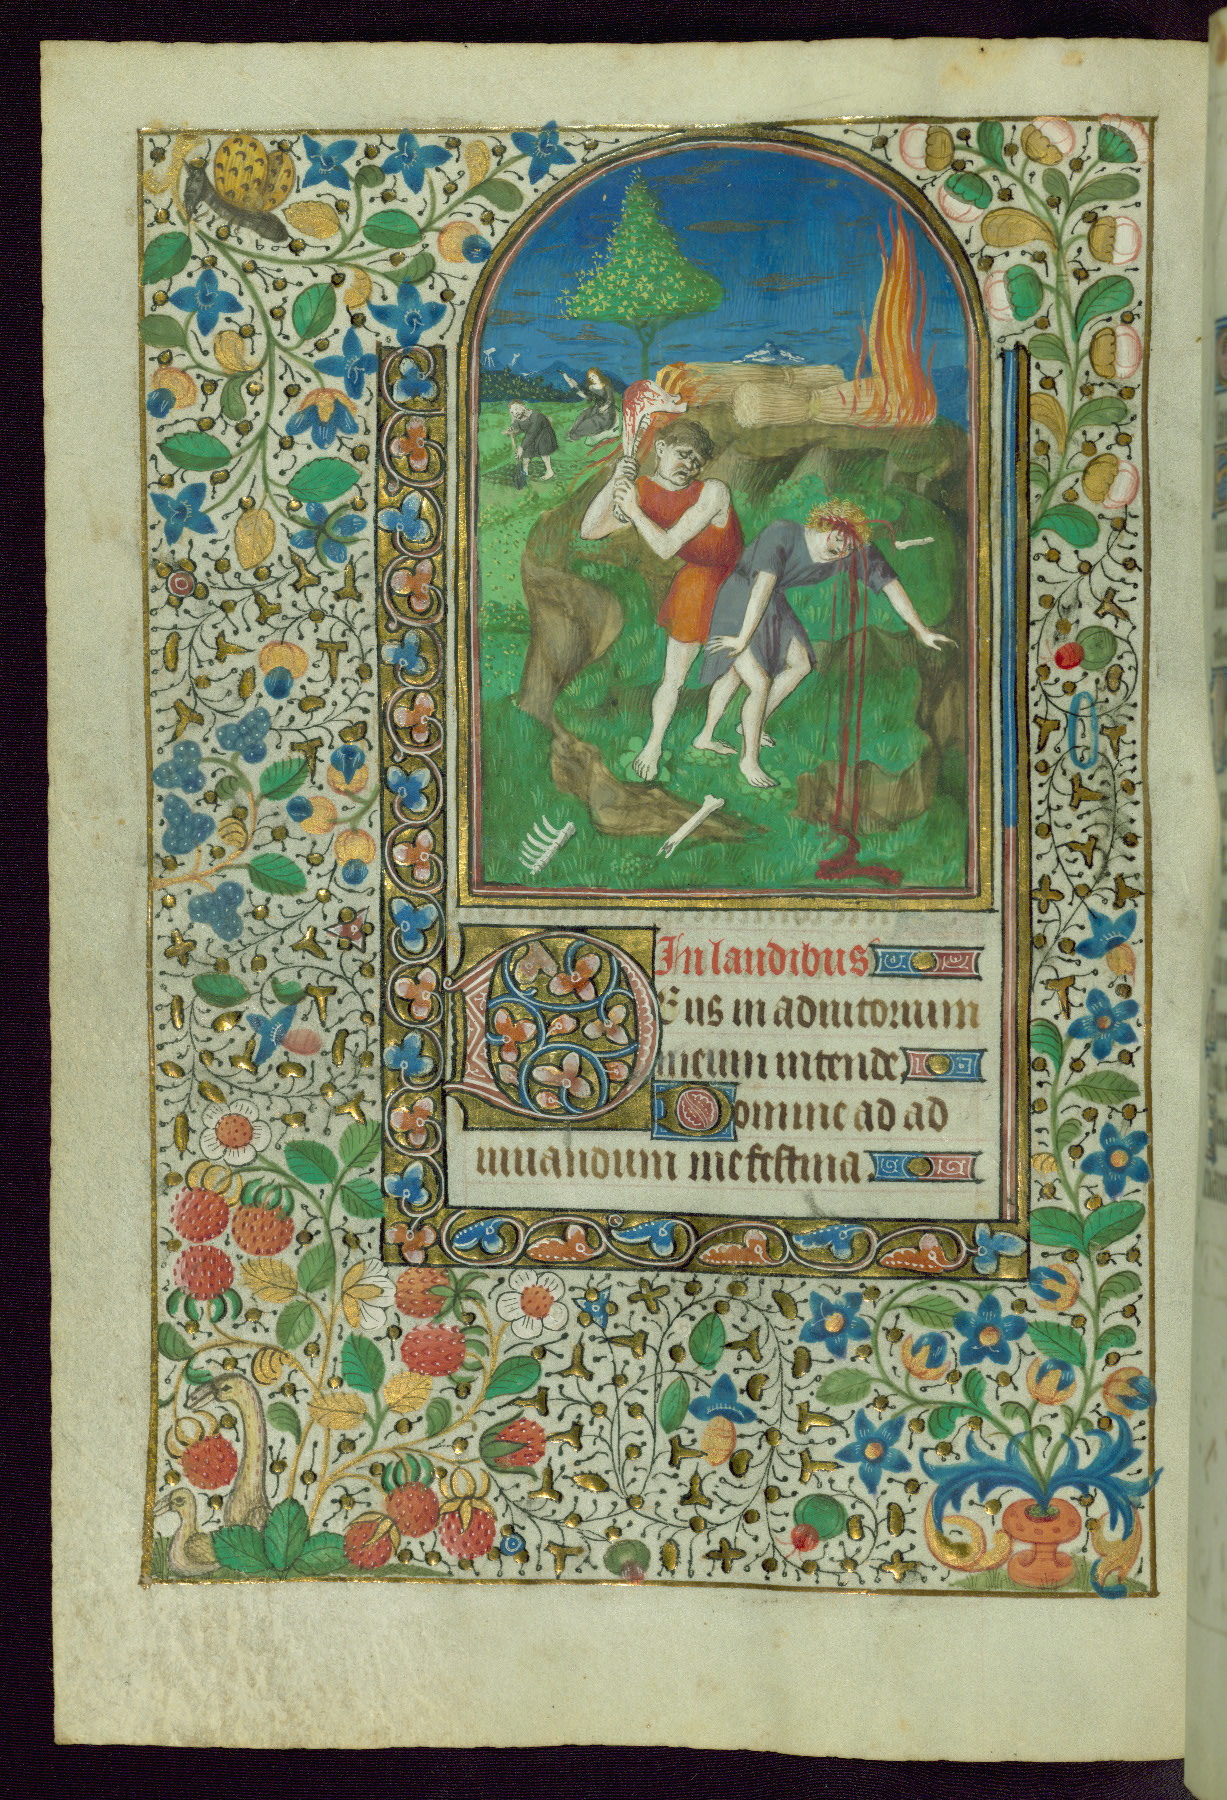 In laudibus
Deus in adiutorium
meum intende
Domine ad ad
iuuandum me festina.